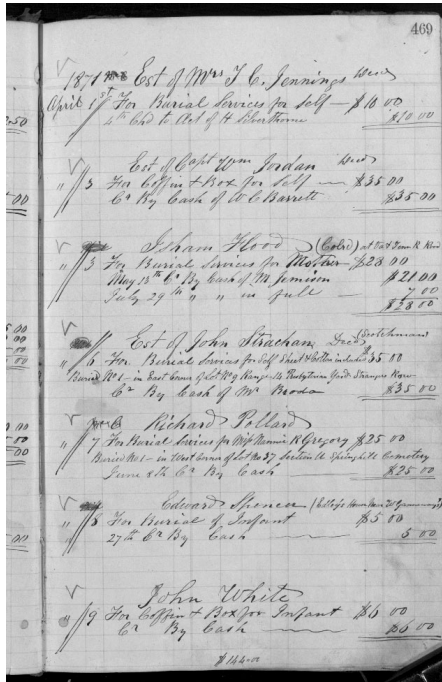 469
1871 Est of Mrs J C. Jennings Decd
April 1st For Burial Services for Self — $10 00
4th Chd to Act of H Silverthorne $10 00
Est of Capt Wm Jordan Decd
" 3 For Coffin & Box for Self — $35 00
Cr By Cash of W C Barrett $35 00
Isham Hood (Cold) at Va & Tenn R Road
" 3 For Burial Services for Mother $28 00
May 13th Cr By Cash of M. Jemison $21 00
July 29th " " " in full — 7 00
$28 00
Est of John Strachan Decd (Scotchman)
" 6 For Burial Services for Self Sheet & Cotton included $35 00
Buried No 1 - in East Corner of Lot No 9 Range Presbyterian Yard Strangers Row
Cr By Cash of Mr $35 00
Richard Pollard
" 7 For Burial Services for Wife Nannie R Gregory $25 00
Buried No 1 - in West Corner of Lot No 37 Section Springhill Cemetery
June 8th Cr By Cash $25 00
Edward Spencer
" 8 For Burial of Infant $5 00
27th Cr By Cash — 5 00
John White
" 9 For Coffin & Box for Infant $6 00
Cr By Cash — $6 00
$144.00